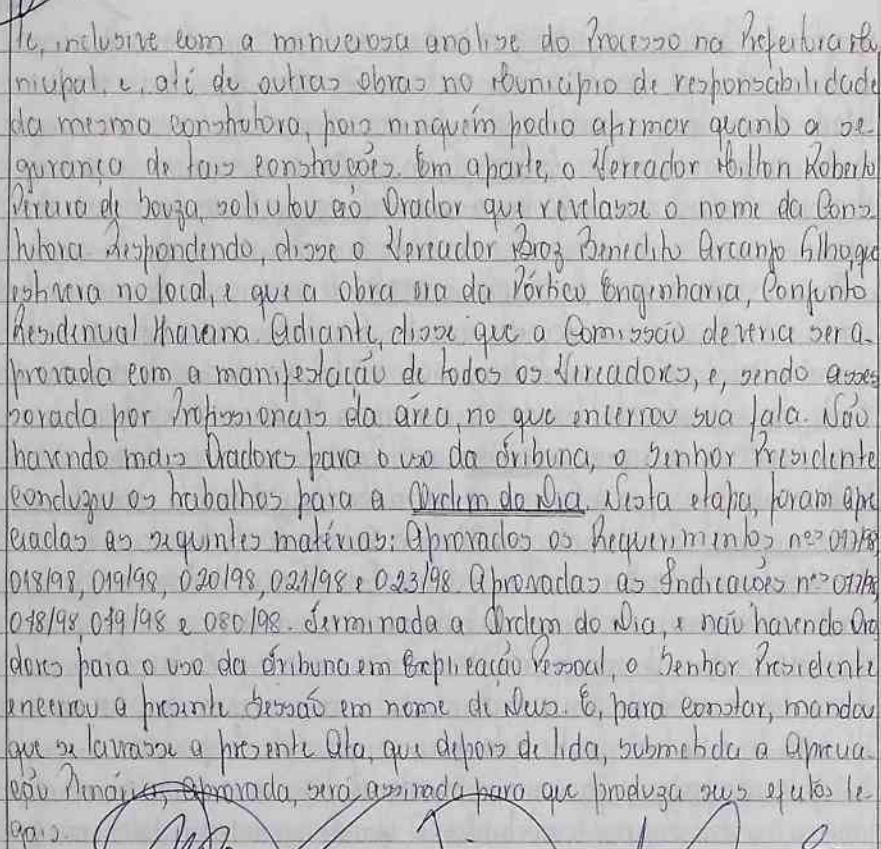 te, inclusive com a minuciosa análise do Processo na Prefeitura Mu
nicipal, e, até de outras obras no Município de responsabilidade
da mesma construtora, pois ninguém podia afirmar quanto a se-
gurança de tais construções. Em aparte, o Vereador Hilton Roberto
Pereira de Souza, solicitou ao Orador que revelasse o nome da Cons
trutora. Respondendo, disse o Vereador Braz Benedito Arcanjo Filho, que
estivera no local, e que a obra era da Pórtico Engenharia, Conjunto
Residencial Adiante, disse que a Comissão deveria ser a-
provada com a manifestação de todos os Vereadores, e, sendo asses
sorada por Profissionais da área, no que encerrou sua fala. Não
havendo mais Oradores para o uso da Tribuna, o Senhor Presidente
conduziu os trabalhos para a Ordem do Dia. Nesta etapa, foram apre
ciadas as seguintes matérias: Aprovados os Requerimentos nºs 017/98
018/98, 019/98, 020/98, 021/98 e 023/98. Aprovadas as Indicações nºs 077/98,
078/98, 079/98 e 080/98. Terminada a Ordem do Dia, e não havendo Ora
dores para o uso da Tribuna em Explicação Pessoal, o Senhor Presidente
encerrou a presente Sessão em nome de Deus. E, para constar, mandou
que se lavrasse a presente Ata, que depois de lida, submetida a Aprecia-
ção Plenária, aprovada, será assinada para que produza seus efeitos le-
gais.